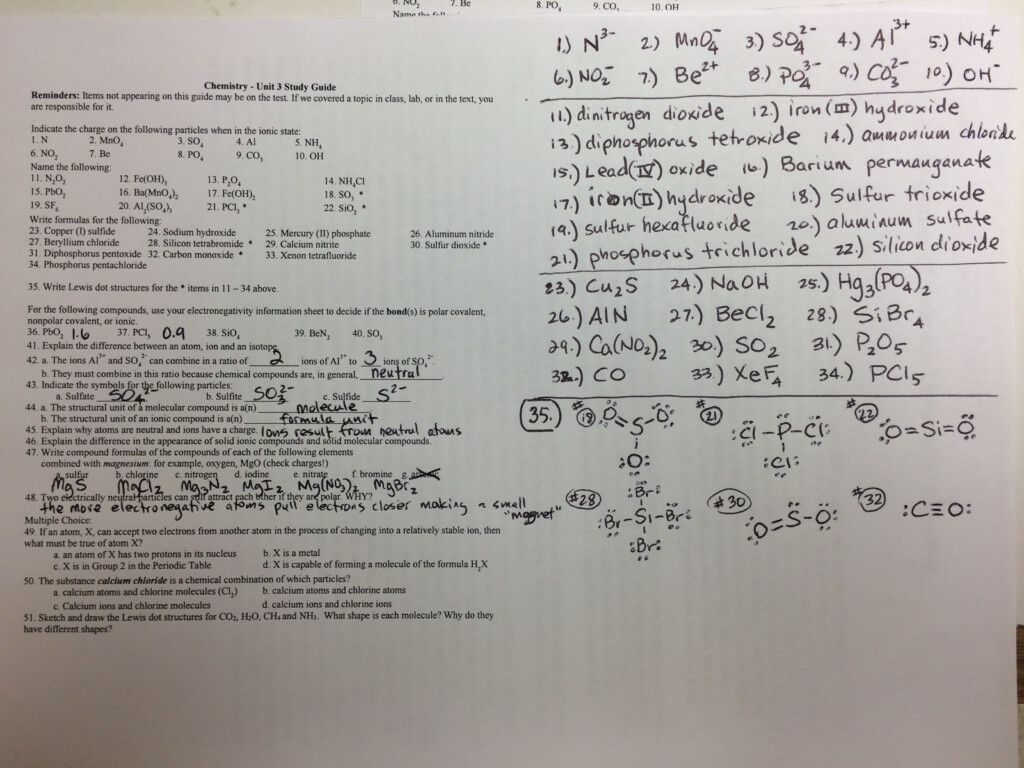 6. NO₂ 7. Be 8. PO₄ 9. CO₃ 10. OH
Chemistry - Unit 3 Study Guide
Reminders: Items not appearing on this guide may be on the test. If we covered a topic in class, lab, or in the text, you
are responsible for it.
Indicate the charge on the following particles when in the ionic state:
1. N 2. MnO₄ 3. SO₄ 4. Al 5. NH₄
6. NO₂ 7. Be 8. PO₄ 9. CO₃ 10. OH
Name the following:
11. N₂O₂ 12. Fe(OH)₃ 13. P₂O₄ 14. NH₄Cl
15. PbO₂ 16. Ba(MnO₄)₂ 17. Fe(OH)₂ 18. SO₃ *
19. SF₆ 20. Al₂(SO₄)₃ 21. PCl₃ * 22. SiO₂ *
Write formulas for the following:
23. Copper (I) sulfide 24. Sodium hydroxide 25. Mercury (II) phosphate 26. Aluminum nitride
27. Beryllium chloride 28. Silicon tetrabromide * 29. Calcium nitrite 30. Sulfur dioxide *
31. Diphosphorus pentoxide 32. Carbon monoxide * 33. Xenon tetrafluoride
34. Phosphorus pentachloride
35. Write Lewis dot structures for the * items in 11 – 34 above.
For the following compounds, use your electronegativity information sheet to decide if the bond(s) is polar covalent,
nonpolar covalent, or ionic.
36. PbO₂ 1.6 37. PCl₅ 0.9 38. SiO₂ 39. BeN₂ 40. SO₃
41. Explain the difference between an atom, ion and an isotope.
42. a. The ions Al³⁺ and SO₄²⁻ can combine in a ratio of 2 ions of Al³⁺ to 3 ions of SO₄²⁻.
b. They must combine in this ratio because chemical compounds are, in general, neutral.
43. Indicate the symbols for the following particles:
a. Sulfate SO₄²⁻ b. Sulfite SO₃²⁻ c. Sulfide S²⁻
44. a. The structural unit of a molecular compound is a(n) molecule
b. The structural unit of an ionic compound is a(n) formula unit
45. Explain why atoms are neutral and ions have a charge. Ions result from neutral atoms
46. Explain the difference in the appearance of solid ionic compounds and solid molecular compounds.
47. Write compound formulas of the compounds of each of the following elements
combined with magnesium: for example, oxygen, MgO (check charges!)
a. sulfur b. chlorine c. nitrogen d. iodine e. nitrate f. bromine g.
MgS MgCl₂ Mg₃N₂ MgI₂ Mg(NO₃)₂ MgBr₂
48. Two electrically neutral particles can still attract each other if they are polar. WHY?
the more electronegative atoms pull electrons closer making a small "magnet"
Multiple Choice:
49. If an atom, X, can accept two electrons from another atom in the process of changing into a relatively stable ion, then
what must be true of atom X?
a. an atom of X has two protons in its nucleus b. X is a metal
c. X is in Group 2 in the Periodic Table d. X is capable of forming a molecule of the formula H₂X
50. The substance calcium chloride is a chemical combination of which particles?
a. calcium atoms and chlorine molecules (Cl₂) b. calcium atoms and chlorine atoms
c. Calcium ions and chlorine molecules d. calcium ions and chlorine ions
51. Sketch and draw the Lewis dot structures for CO₂, H₂O, CH₄ and NH₃. What shape is each molecule? Why do they
have different shapes?
1.) N³⁻ 2.) MnO₄⁻ 3.) SO₄²⁻ 4.) Al³⁺ 5.) NH₄⁺
6.) NO₂⁻ 7.) Be²⁺ 8.) PO₄³⁻ 9.) CO₃²⁻ 10.) OH⁻
11.) dinitrogen dioxide 12.) iron (III) hydroxide
13.) diphosphorus tetroxide 14.) ammonium chloride
15.) Lead(IV) oxide 16.) Barium permanganate
17.) iron(II) hydroxide 18.) Sulfur trioxide
19.) sulfur hexafluoride 20.) aluminum sulfate
21.) phosphorus trichloride 22.) silicon dioxide
23.) Cu₂S 24.) NaOH 25.) Hg₃(PO₄)₂
26.) AlN 27.) BeCl₂ 28.) SiBr₄
29.) Ca(NO₂)₂ 30.) SO₂ 31.) P₂O₅
32.) CO 33.) XeF₄ 34.) PCl₅
35. #18 O=S-O #21 Cl-P-Cl #22 O=Si=O
O Cl
#28 Br #30 O=S-O #32 :C≡O:
Br-Si-Br
Br